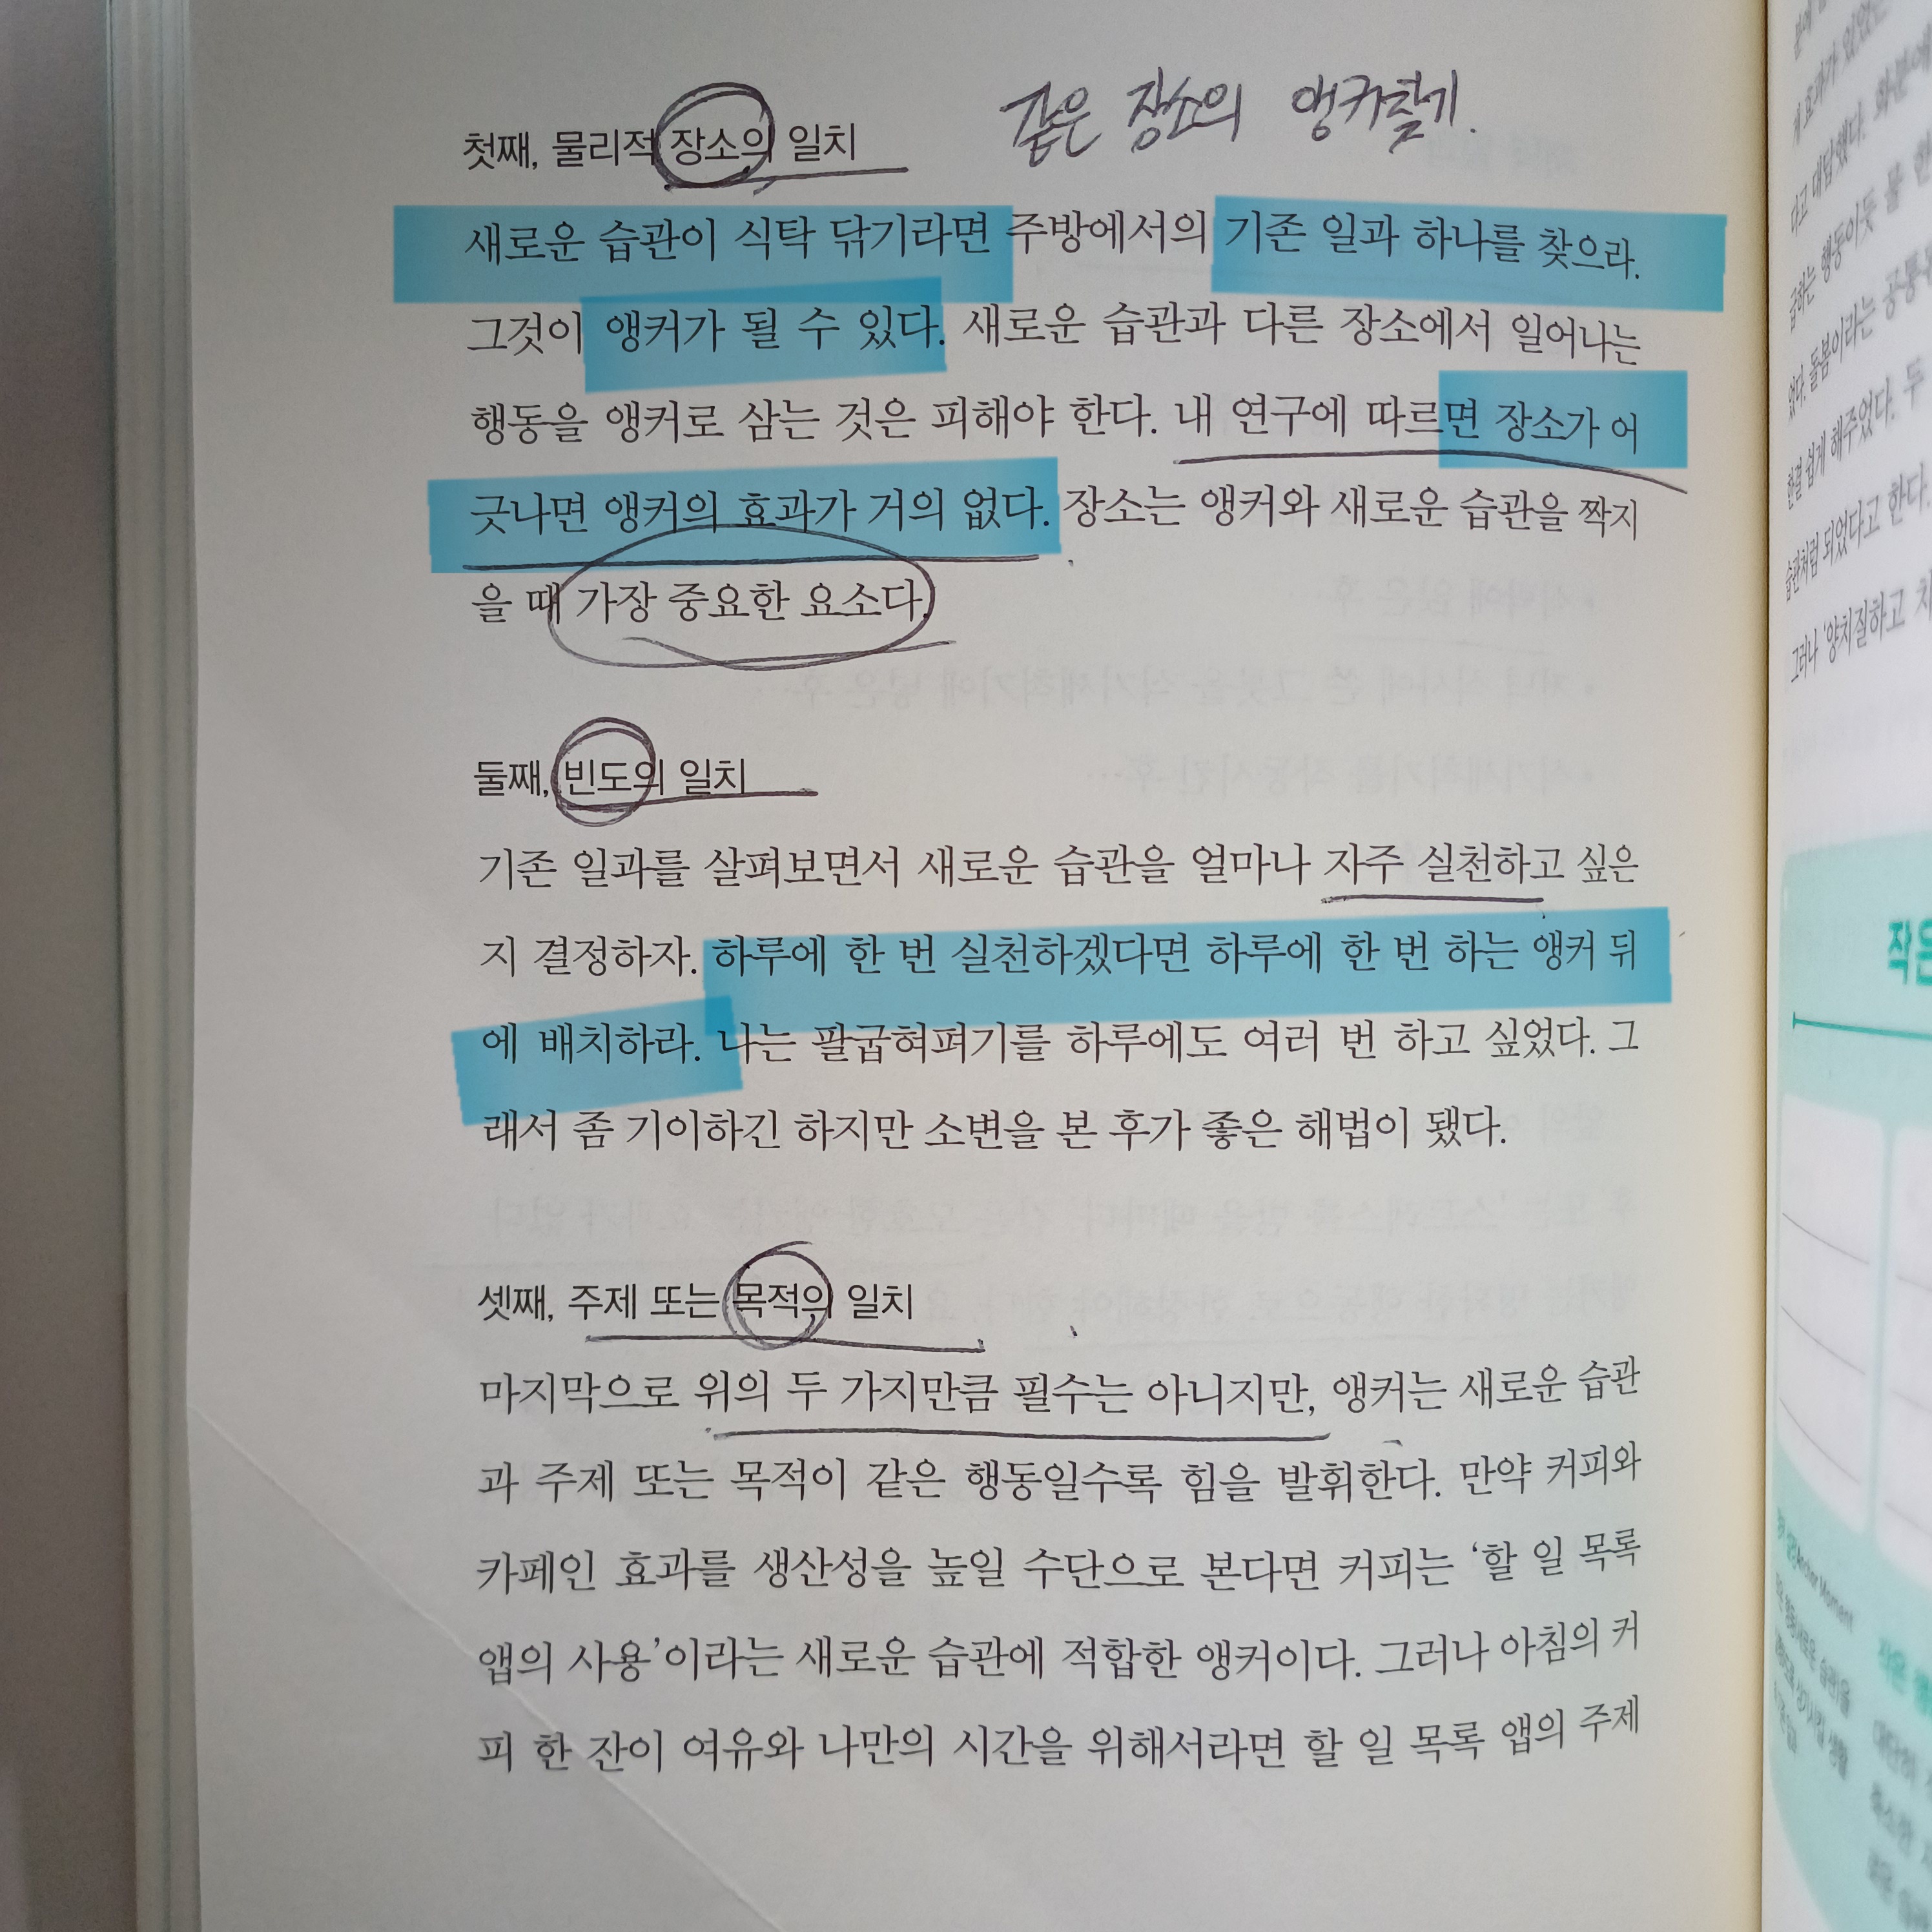 같은 장소의 앵커찾기.
첫째, 물리적 장소의 일치
새로운 습관이 식탁 닦기라면 주방에서의 기존 일과 하나를 찾으라.
그것이 앵커가 될 수 있다. 새로운 습관과 다른 장소에서 일어나는
행동을 앵커로 삼는 것은 피해야 한다. 내 연구에 따르면 장소가 어
긋나면 앵커의 효과가 거의 없다. 장소는 앵커와 새로운 습관을 짝지
을 때 가장 중요한 요소다.
둘째, 빈도의 일치
기존 일과를 살펴보면서 새로운 습관을 얼마나 자주 실천하고 싶은
지 결정하자. 하루에 한 번 실천하겠다면 하루에 한 번 하는 앵커 뒤
에 배치하라. 나는 팔굽혀펴기를 하루에도 여러 번 하고 싶었다. 그
래서 좀 기이하긴 하지만 소변을 본 후가 좋은 해법이 됐다.
셋째, 주제 또는 목적의 일치
마지막으로 위의 두 가지만큼 필수는 아니지만, 앵커는 새로운 습관
과 주제 또는 목적이 같은 행동일수록 힘을 발휘한다. 만약 커피와
카페인 효과를 생산성을 높일 수단으로 본다면 커피는 ‘할 일 목록
앱의 사용’이라는 새로운 습관에 적합한 앵커이다. 그러나 아침의 커
피 한 잔이 여유와 나만의 시간을 위해서라면 할 일 목록 앱의 주제
다고 대답했다.
급하는 행동이듯 물
없다. 돌봄이라는 공통
한결 쉽게 해주었다. 두
습관처럼 되었다고 한다.
그러나 ‘양치질하고
Anchor Moment